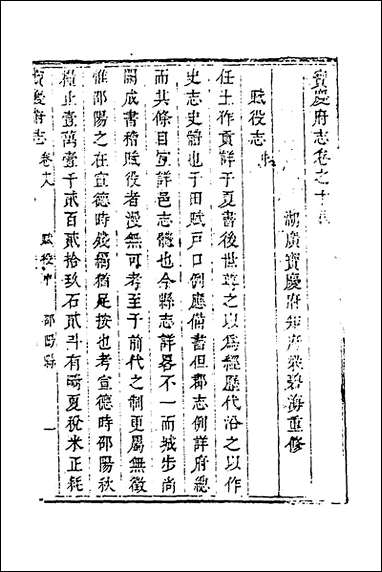 寳慶府志卷之十
湖廣寳慶府知府梁碧海重修
賦役志
任土作貢詳于夏書後世尊之以爲經歷代沿之以作
史志史體也于田賦戸口例應備書但郡志例詳府總
而其條目宜詳邑志體也今縣志詳畧不一而城步尚
闕成書稽賦役者漫無可考至于前代之制更屬無徵
惟邵陽之在宣德時殘碣猶足按也考宣德時邵陽秋
糧止壹萬壹千貳百貳拾玖石貳斗有竒夏稅米正耗
寳慶府志 卷十八 賦役中 邵陽縣 一